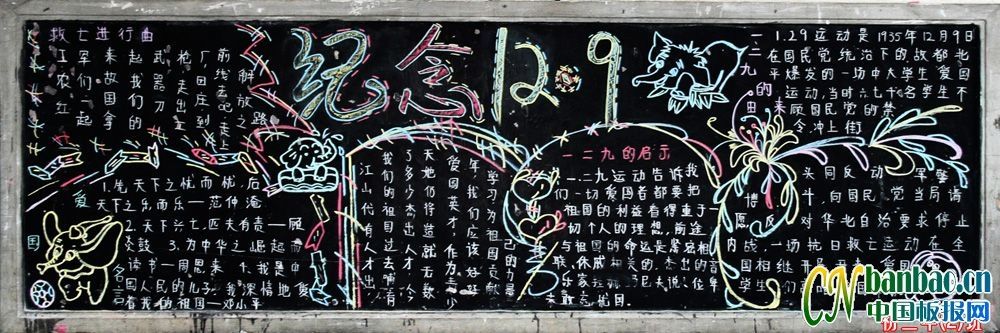 纪念12·9
救亡进行曲
工农红
军们一起
来故国拿
起我们的
武器刀
枪走出立
厂田庄到
前线去吧走上
解放之路
爱国名言
1.先天下之忧而忧,后
天下之乐而乐—范仲淹
2.天下兴亡,匹夫有责—顾
炎武 3.为中华之崛起而
读书—周恩来 4.我是中国
人民的儿子,我深情地爱
着我的祖国—邓小平
江山代有人才出
我们的祖国过去哺育
了多少杰出人才,今
天她仍将造就无数
爱国英才,作为青少
年,我们应该好好
学习,为祖国贡献
己的力量
一二九的启示
一二九运动告诉我
们一切爱国者都要把
祖国的利益看得重于一
切个人的理想,前途
与祖国的命运是紧密相
联、休戚相关的,杰出的音
乐家
敢忘忧国
一二九的由来
1.29运动是1935年12月9日
在国民党统治下的故都北
平爆发的一场中大学生爱国
运动,当时六七千名学生不
顾国民党的禁
令,冲上街
头同反动 军警
搏斗,向国民党当局请
愿,反对华北自治要求停止
内战,一场抗日救亡运动在全
国相继开
学生
CN banbao.cn
中国板报网